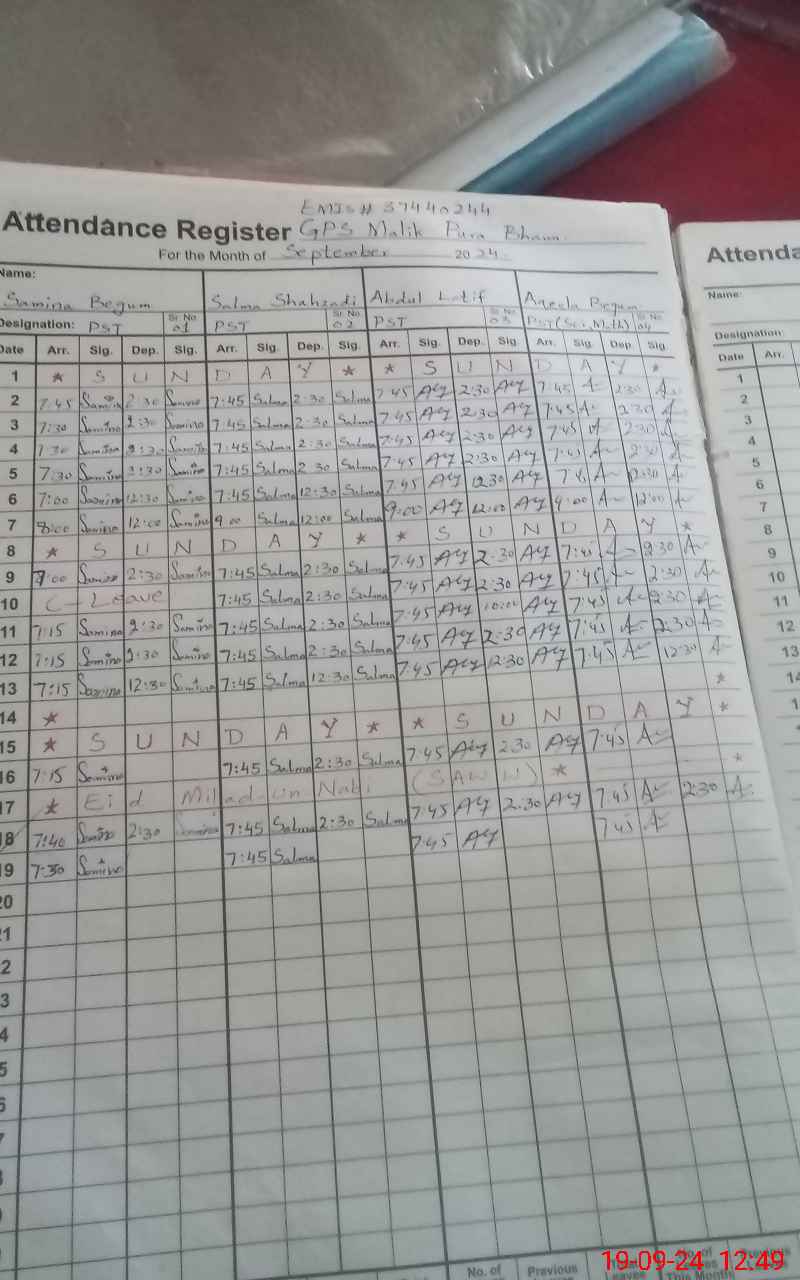 EMIS# 37440244
Attendance Register GPS Malik Pura Bham
For the Month of September 2024
Attenda
Name:
Samina Begum Salma Shahzadi Abdul Latif Aneela Begum
Name:
Designation: PST Sr. No. 01 PST Sr. No. 02 PST Sr. No. 03 PST (Sci, Math) Sr. No. 04
Designation:
Date Arr. Sig. Dep. Sig. Arr. Sig. Dep. Sig. Arr. Sig. Dep. Sig. Arr. Sig. Dep. Sig.
Date Arr.
1 * S U N D A Y * * S U N D A Y *
2 7:45 Samina 2:30 Samina 7:45 Salma 2:30 Salma 7:45 2:30 7:45 2:30
3 7:30 Samina 2:30 Samina 7:45 Salma 2:30 Salma 7:45 2:30 7:45 2:30
4 7:30 Samina 2:30 Samina 7:45 Salma 2:30 Salma 7:45 2:30 7:45 2:30
5 7:30 Samina 2:30 Samina 7:45 Salma 2:30 Salma 7:45 2:30 7:45 2:30
6 7:00 Samina 12:30 Samina 7:45 Salma 12:30 Salma 7:45 12:30 7:45 12:30
7 8:00 Samina 12:00 Samina 9:00 Salma 12:00 Salma 9:00 12:00 9:00 12:00
8 * S U N D A Y * * S U N D A Y *
9 7:00 Samina 2:30 Samina 7:45 Salma 2:30 Salma 7:45 2:30 7:45 2:30
10 C-Leave 7:45 Salma 2:30 Salma 7:45 2:30 7:45 2:30
11 7:15 Samina 2:30 Samina 7:45 Salma 2:30 Salma 7:45 10:00 7:45 2:30
12 7:15 Samina 2:30 Samina 7:45 Salma 2:30 Salma 7:45 2:30 7:45 2:30
13 7:15 Samina 12:30 Samina 7:45 Salma 12:30 Salma 7:45 12:30 7:45 12:30
14 * *
15 * S U N D A Y * * S U N D A Y *
16 7:15 Samina 7:45 Salma 2:30 Salma 7:45 2:30 7:45
17 * Eid Milad-un Nabi (SAWW) * *
18 7:40 Samina 2:30 Samina 7:45 Salma 2:30 Salma 7:45 2:30 7:45 2:30
19 7:30 Samina 7:45 Salma 7:45 7:45
20
1
2
3
4
5
6
7
1
2
3
4
5
6
7
8
9
10
11
12
13
No. of Previous
19-09-24 12:49